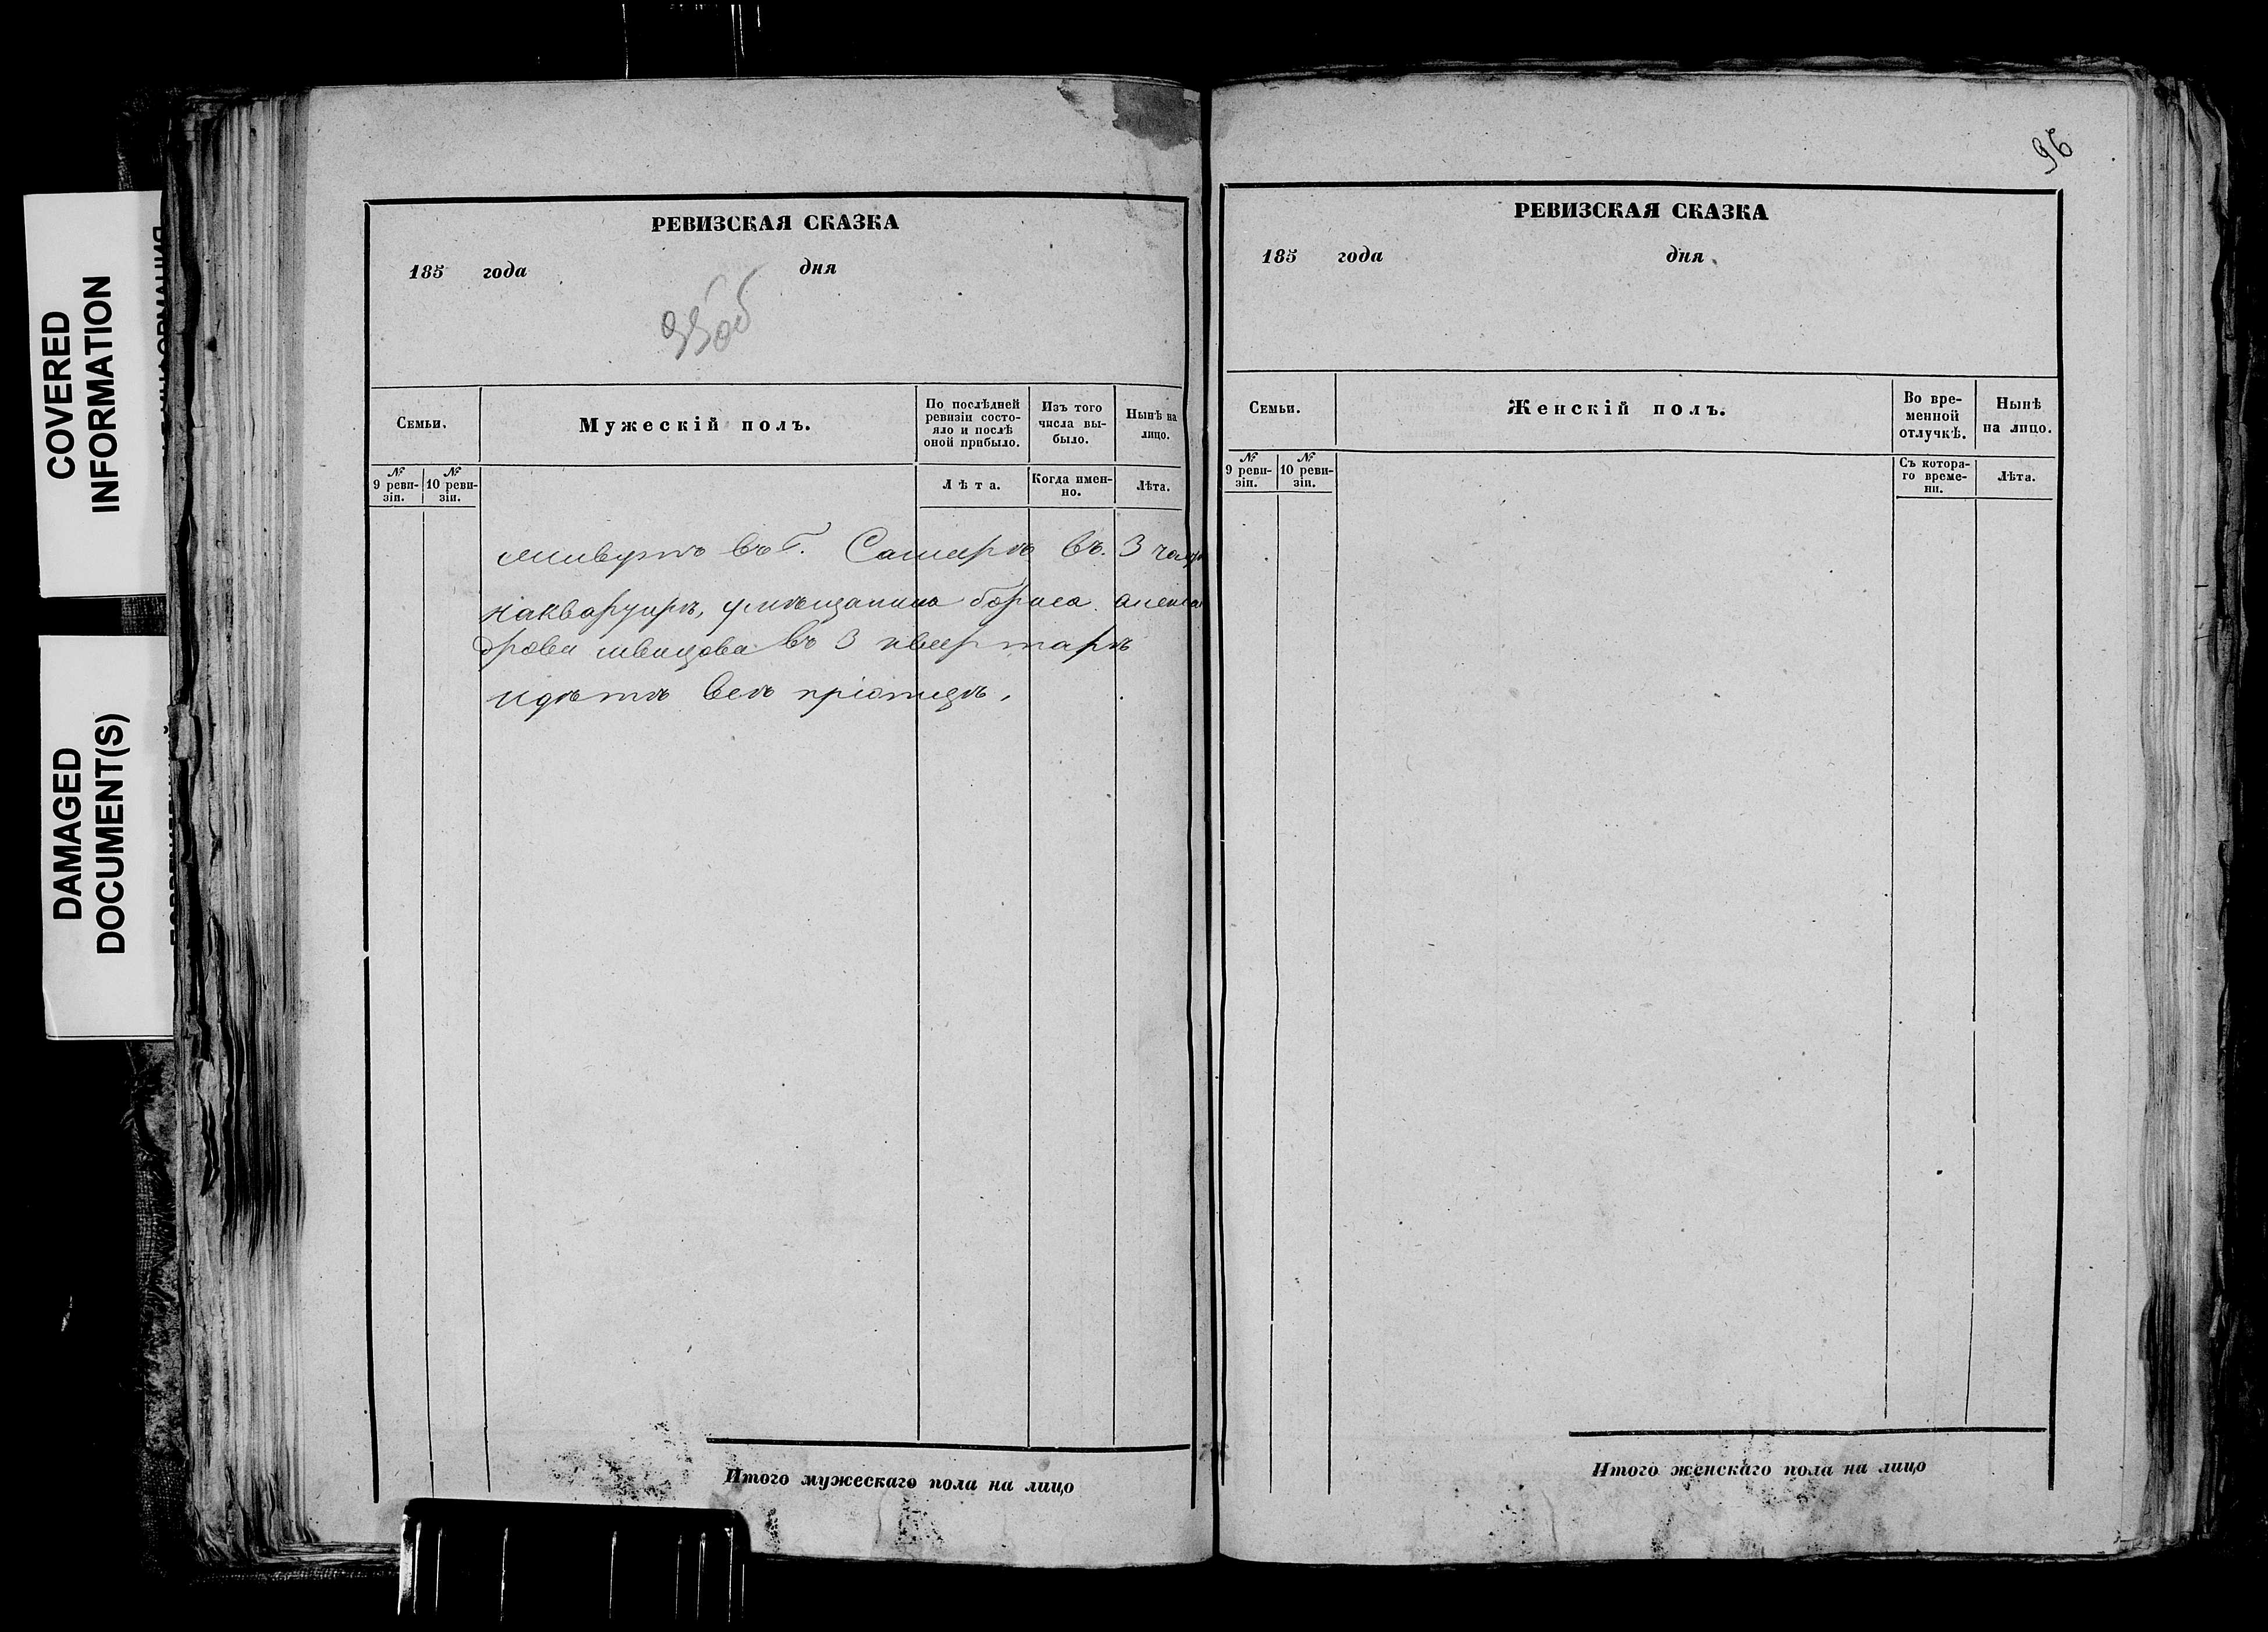 COVERED
INFORMATION
DAMAGED
DOCUMENT(S)
РЕВИЗСКАЯ СКАЗКА
185 года дня
95об
Семьи.
Мужескій полъ.
По послѣдней
ревизіи состо-
яло и послѣ
оной прибыло.
Изъ того
числа вы-
было.
Нынѣ на
лицо.
№
9 реви-
зіи.
№
10 реви-
зіи.
Лѣта.
Когда имен-
но.
Лѣта.
живутъ въ г. Самарѣ въ 3 части
наквартирѣ, умѣщанина бориса алекса
дрова швецова въ 3 квартарѣ
Итого мужескаго пола на лицо
96
РЕВИЗСКАЯ СКАЗКА
185 года дня
Семьи.
Женскій полъ.
Во вре-
менной
отлучкѣ.
Нынѣ
на лицо.
№
9 реви-
зіи.
№
10 реви-
зіи.
Съ котора-
го време-
ни.
Лѣта.
Итого женскаго пола на лицо